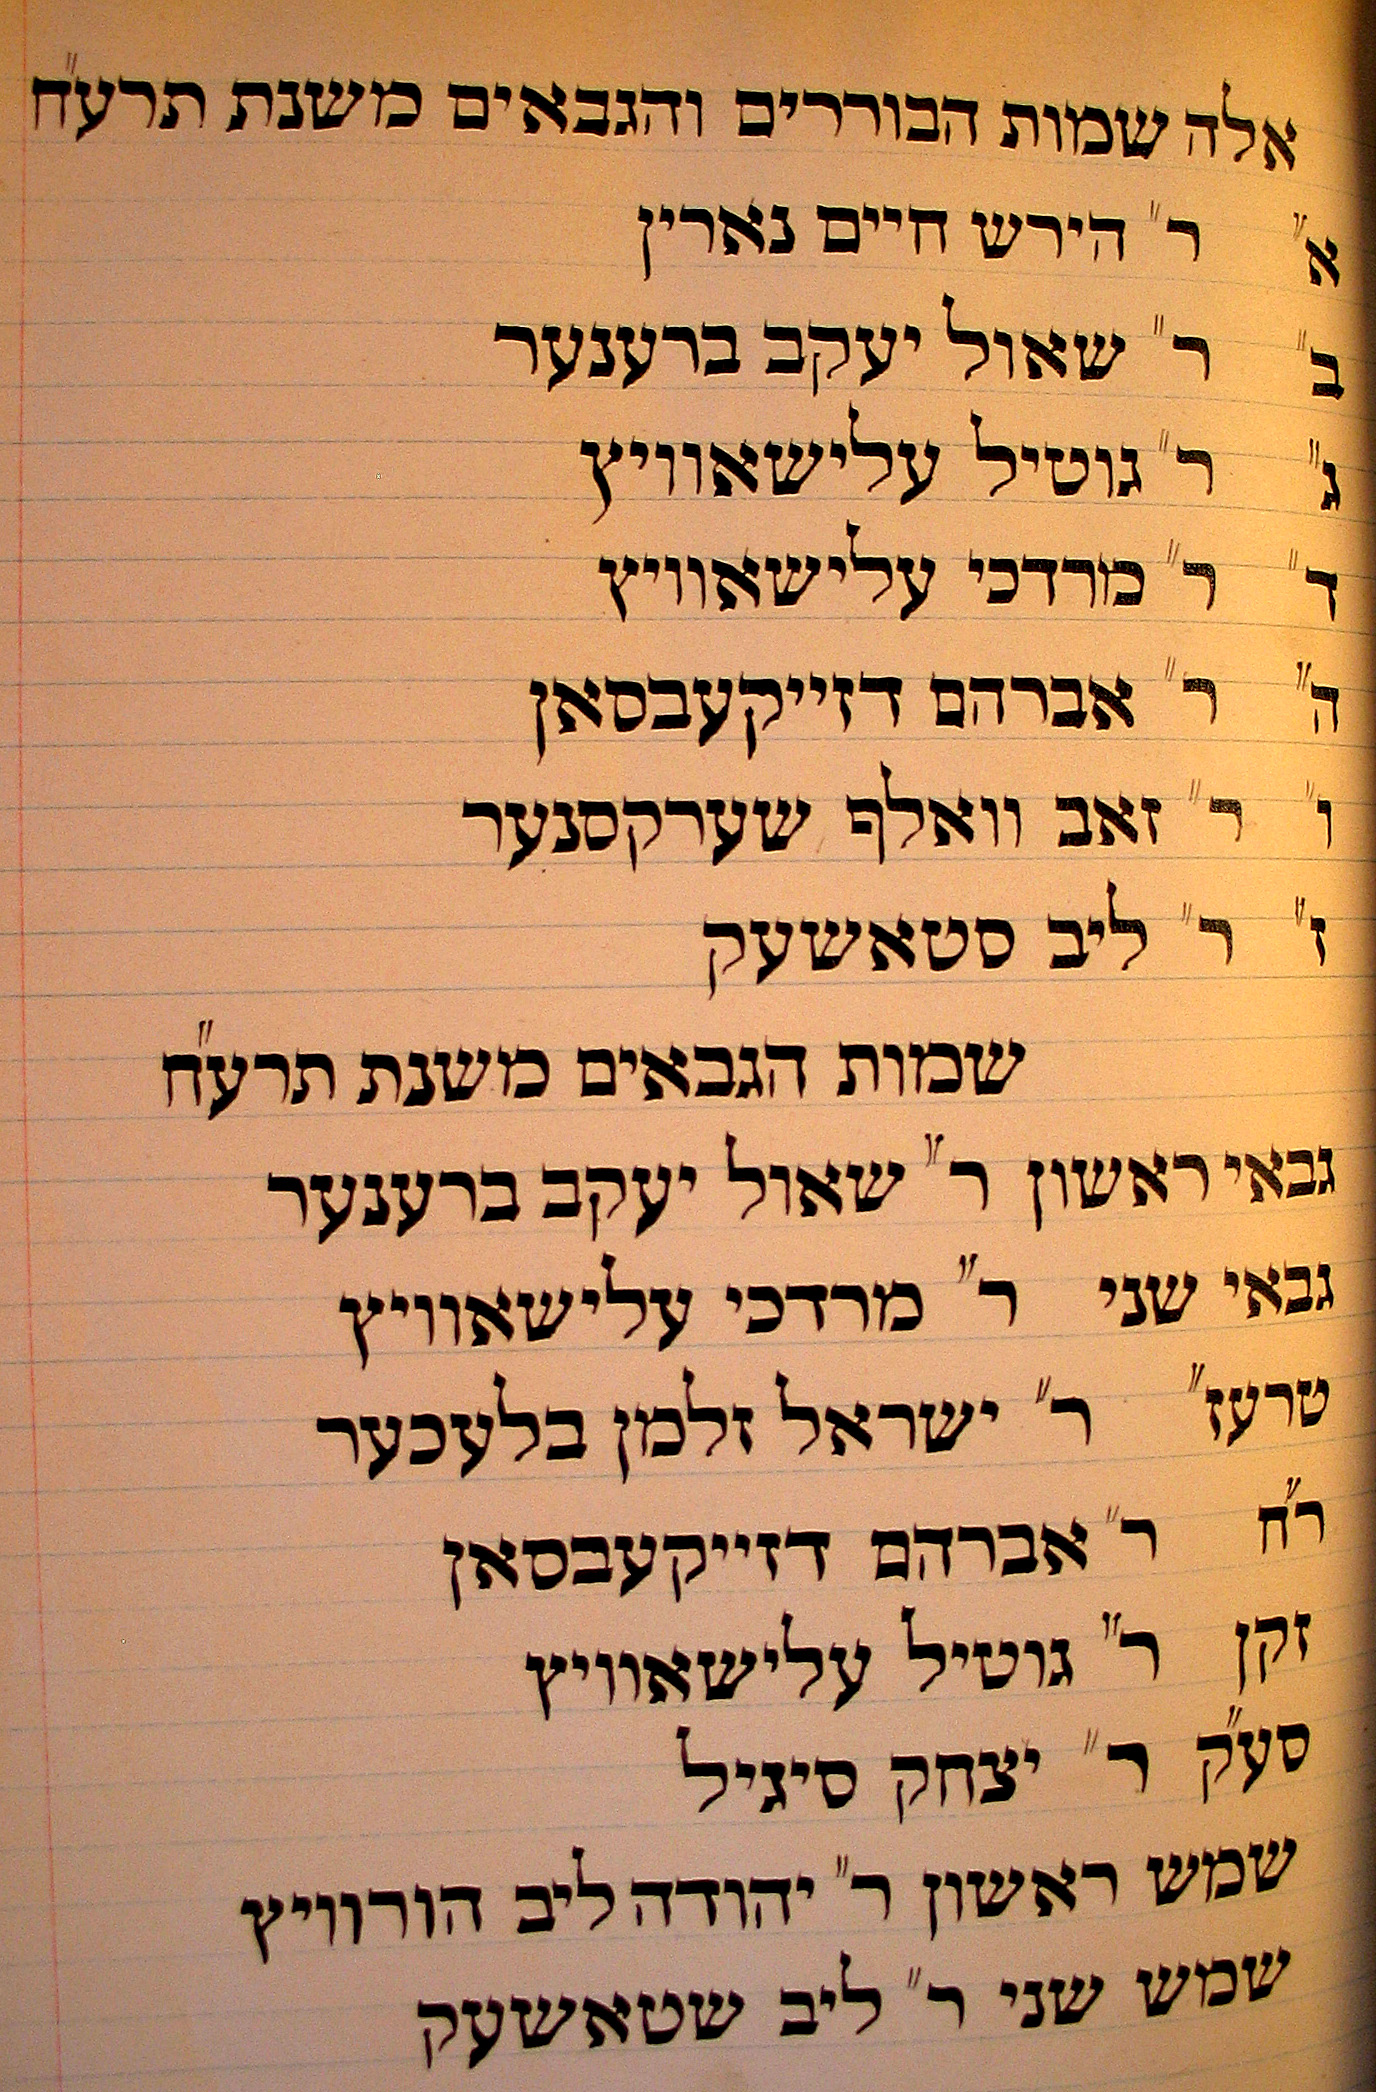 אלה שמות הבוררים והגבאים משנת תרע״ח
א״ ר״ הירש חיים נארין
ב״ ר״ שאול יעקב ברענער
ג״ ר״ גוטיל עלישאוויץ
ד״ ר״ מרדכי עלישאוויץ
ה״ ר״ אברהם דזייקעבסאן
ו״ ר״ זאב וואלף שערקסנער
ז״ ר״ ליב סטאשעק
שמות הגבאים משנת תרע״ח
גבאי ראשון ר״ שאול יעקב ברענער
גבאי שני ר״ מרדכי עלישאוויץ
טרעז״ ר״ ישראל זלמן בלעכער
ר״ח ר״ אברהם דזייקעבסאן
זקן ר״ גוטיל עלישאוויץ
סע״ק ר״ יצחק סיגיל
שמש ראשון ר״ יהודה ליב הורוויץ
שמש שני ר״ ליב שטאשעק